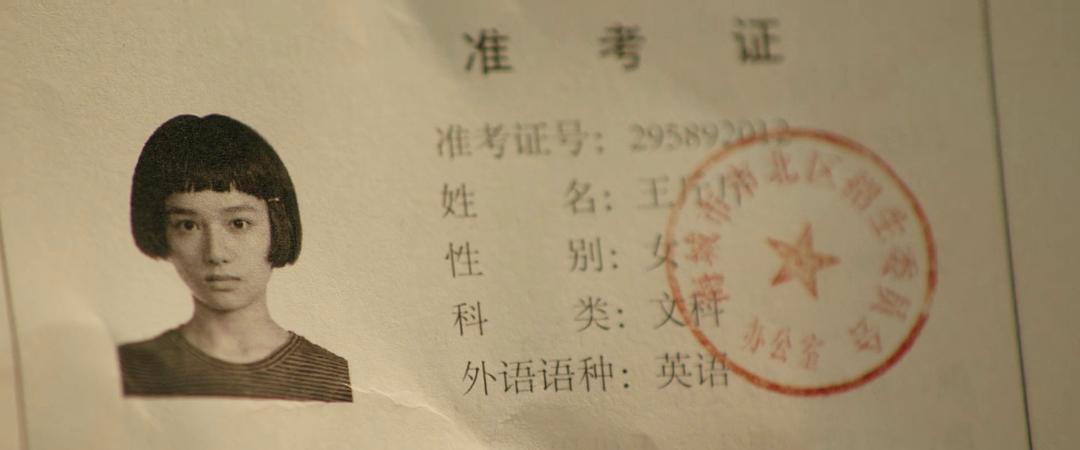 准考证
准考证号：295892012
姓名：王
性别：女
科类：文科
外语语种：英语
城市市北区招生委员会
办公室